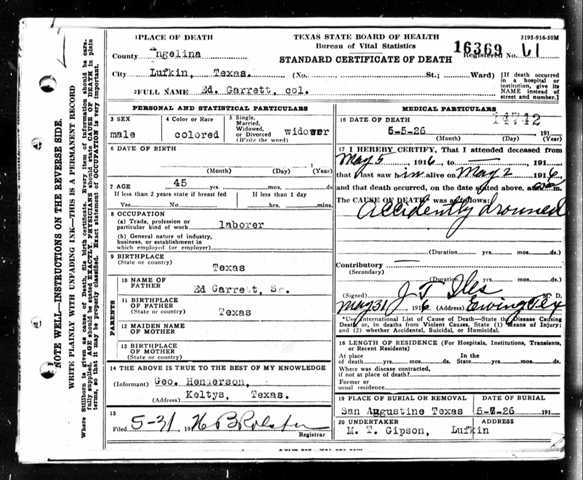 PLACE OF DEATH
TEXAS STATE BOARD OF HEALTH
Bureau of Vital Statistics
STANDARD CERTIFICATE OF DEATH
16369 Registered No. 61
County Angelina
City Lufkin, Texas. (No. St.; Ward)
[If death occurred in a hospital or institution, give its NAME instead of street and number.]
FULL NAME Ed. Garrett, col.
PERSONAL AND STATISTICAL PARTICULARS
3 SEX male
4 Color or Race colored
5 Single, Married, Widowed, or Divorced (Write the word) widower
6 DATE OF BIRTH
(Month) (Day) (Year)
7 AGE 45 yrs. mos. ds.
If less than 2 years state if breast fed
If less than 1 day
Yes No hrs. min.
8 OCCUPATION
(a) Trade, profession or particular kind of work laborer
(b) General nature of industry, business, or establishment in which employed (or employer)
9 BIRTHPLACE (State or country) Texas
PARENTS
10 NAME OF FATHER Ed Garrett, Sr.
11 BIRTHPLACE OF FATHER (State or country) Texas
12 MAIDEN NAME OF MOTHER
13 BIRTHPLACE OF MOTHER (State or country)
14 THE ABOVE IS TRUE TO THE BEST OF MY KNOWLEDGE
(Informant) Geo. Henderson,
(Address) Keltys, Texas.
15
Filed 5-31
Registrar
MEDICAL PARTICULARS
14742
16 DATE OF DEATH
5-5-26 191
(Month) (Day) (Year)
17 I HEREBY CERTIFY, That I attended deceased from
May 5 1916, to — 191
that I last saw him alive on May 2 1916
and that death occurred, on the date stated above, at m.
The CAUSE OF DEATH was as follows:
Accidently drouned
(Duration) yrs. mos. ds.
Contributory —
(Secondary)
(Duration) yrs. mos. ds.
(Signed) J T Iles M. D.
May 31 1916 (Address) Ewing Tex
*Use International List of Cause of Death—State the Disease Causing Death, or, in deaths from Violent Causes, State (1) Means of Injury; and (2) whether Accidental, Suicidal, or Homicidal.
18 LENGTH OF RESIDENCE (For Hospitals, Institutions, Transients, or Recent Residents)
At place of death yrs. mos. ds. In the State yrs. mos. ds.
Where was disease contracted, if not at place of death?
Former or usual residence
19 PLACE OF BURIAL OR REMOVAL
San Augustine Texas
DATE OF BURIAL
191
20 UNDERTAKER
M. T. Gipson,
ADDRESS
Lufkin
NOTE WELL—INSTRUCTIONS ON THE REVERSE SIDE.
WRITE PLAINLY WITH UNFADING INK—THIS IS A PERMANENT RECORD